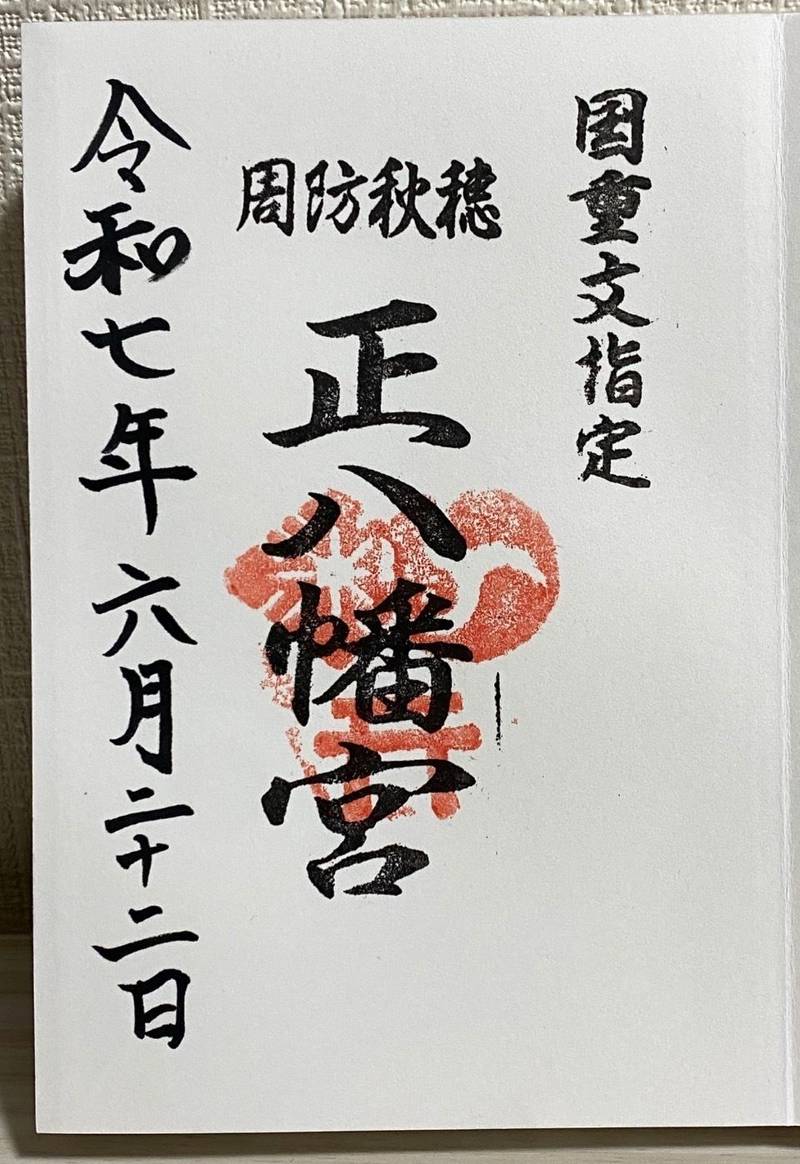 国重文指定
周防秋穂
正八幡宮
令和七年六月二十二日